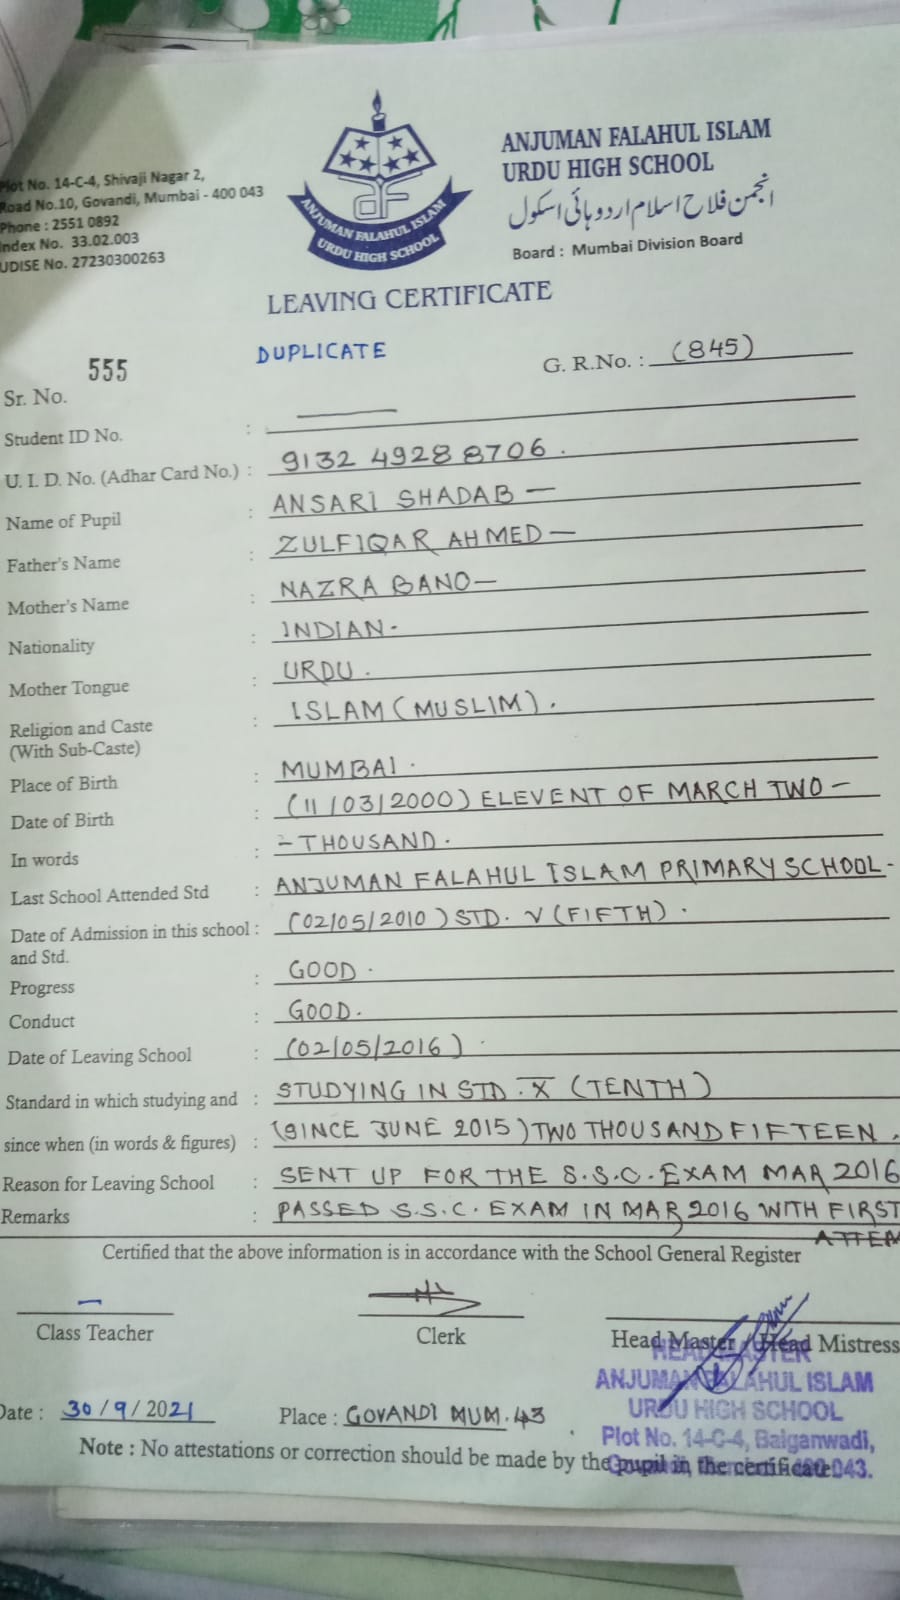 Plot No. 14-C-4, Shivaji Nagar 2,
Road No.10, Govandi, Mumbai - 400 043
Phone : 2551 0892
Index No. 33.02.003
UDISE No. 27230300263
ANJUMAN FALAHUL ISLAM
URDU HIGH SCHOOL
ANJUMAN FALAHUL ISLAM
URDU HIGH SCHOOL
انجمن فلاح اسلام اردو ہائی اسکول
Board : Mumbai Division Board
LEAVING CERTIFICATE
DUPLICATE
Sr. No. 555
G. R.No. : (845)
Student ID No. : —
U. I. D. No. (Adhar Card No.) : 9132 4928 8706 .
Name of Pupil : ANSARI SHADAB —
Father's Name : ZULFIQAR AHMED —
Mother's Name : NAZRA BANO —
Nationality : INDIAN -
Mother Tongue : URDU .
Religion and Caste : ISLAM (MUSLIM) .
(With Sub-Caste)
Place of Birth : MUMBAI .
Date of Birth : (11/03/2000) ELEVENT OF MARCH TWO —
In words : - THOUSAND .
Last School Attended Std : ANJUMAN FALAHUL ISLAM PRIMARY SCHOOL -
Date of Admission in this school : (02/05/2010) STD. V (FIFTH) .
and Std.
Progress : GOOD .
Conduct : GOOD .
Date of Leaving School : (02/05/2016) .
Standard in which studying and : STUDYING IN STD. X (TENTH)
since when (in words & figures) : (SINCE JUNE 2015) TWO THOUSAND FIFTEEN .
Reason for Leaving School : SENT UP FOR THE S.S.C. EXAM MAR 2016
Remarks : PASSED S.S.C. EXAM IN MAR 2016 WITH FIRST
ATTEM
Certified that the above information is in accordance with the School General Register
Class Teacher
Clerk
Head Master / Head Mistress
HEAD MASTER
ANJUMAN FALAHUL ISLAM
URDU HIGH SCHOOL
Plot No. 14-C-4, Baiganwadi,
043.
Date : 30/9/2021
Place : GOVANDI MUM. 43
Note : No attestations or correction should be made by the pupil in the certificate